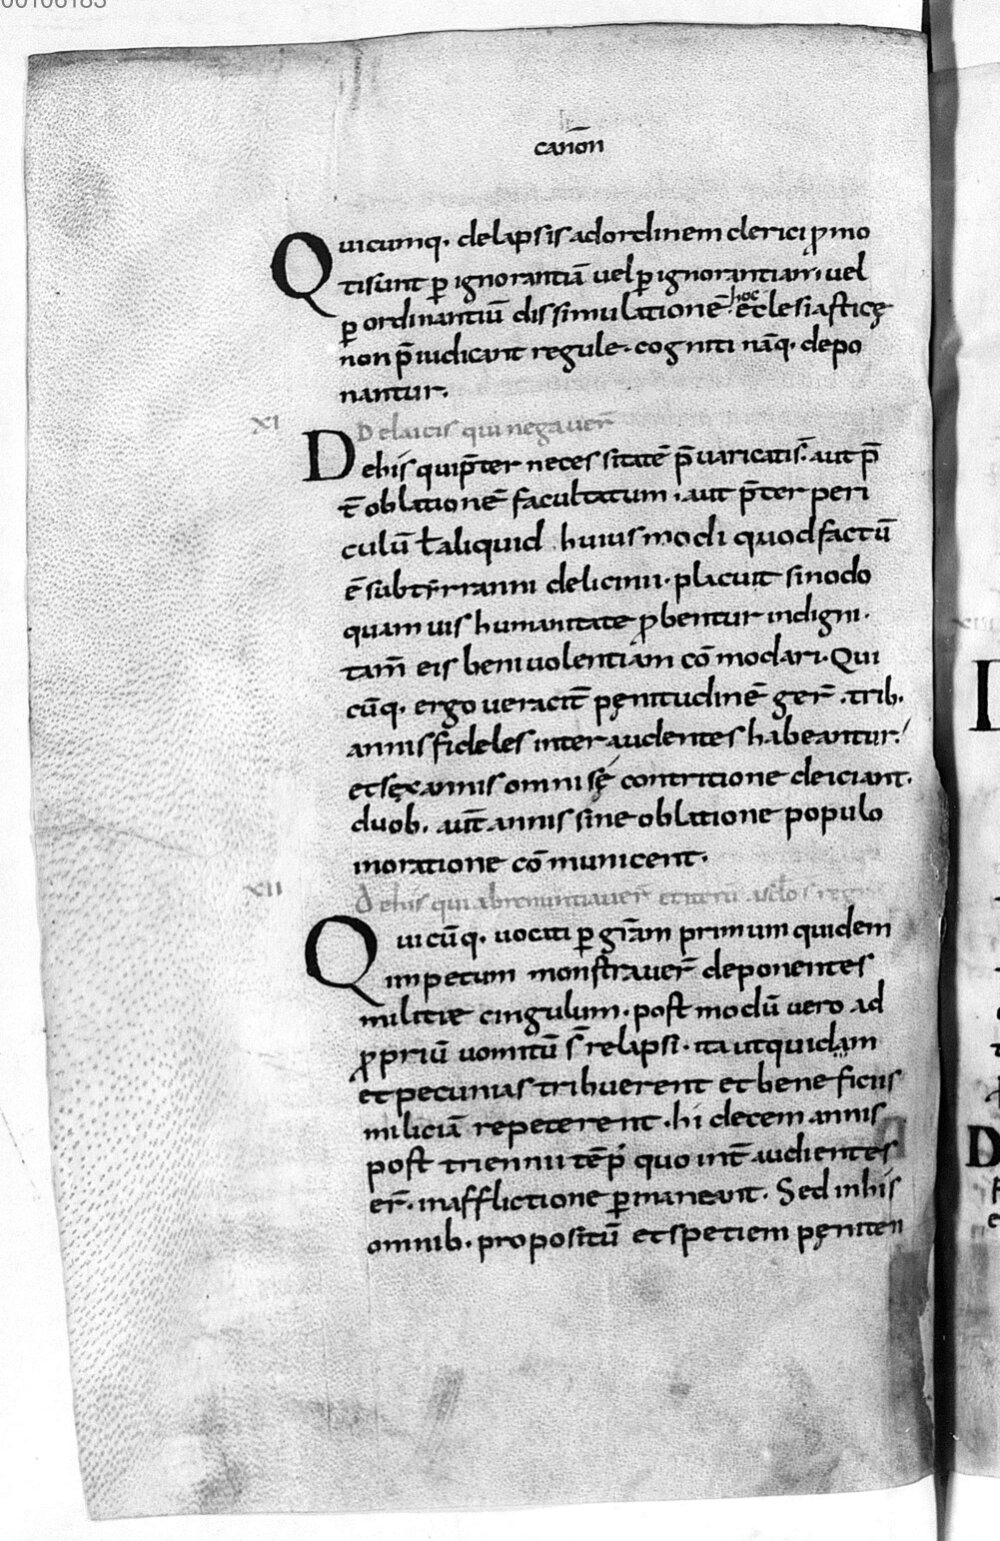 00106183
canoñ
Quicumq. delapsis adordinem clerici ꝓmo
tisunt ꝑ ignorantiā uel ꝑ ignorantiam. uel
ꝑ ordinantiū dissimulationē. hoc ecclesiasticę
non p̄iudicant regule. cogniti nāq. depo
nantur.
XI
Delaicis qui negauer̄
Dehis quip̄ter necessitatē p̄uaricatis. aut p̄
t̄ oblationē facultatum. aut p̄ter peri
culū ł aliquid huiusmodi quodfactū
ē subtẏrranni delicinii. placuit sinodo
quamuis humanitate ꝓbentur indigni.
tam̄ eis beniuolentiam cōmodari. Qui
cūq. ergo ueracit̄ pęnitudinē ger̄. trib.
annis fideles interaudentes habeantur.
etsex annis omni sę contritione deiciant.
duob. aut̄ annis sine oblatione populo
inoratione cōmunicent.
XII
Dehis qui abrenuntiauer̄ etiterū adsclos
Quicūq. uocati ꝑ gr̄am primum quidem
impetum monstrauer̄ deponentes
militiae cingulum. postmodū uero ad
ꝓpriū uomitū s̄ relapsi. ita utquidam
et pecunias tribuerent et beneficiis
miliciā repeterent. hi decem annis
post triennii tēp̄ quo int̄ audientes
er̄. inafflictione ꝑmaneant. Sed inhis
omnib. propositū etspetiem pęniten